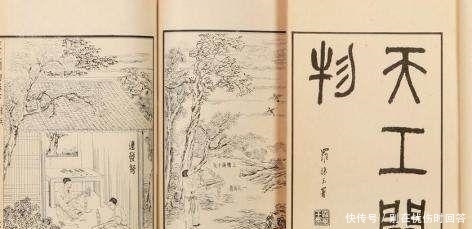 天工開
物
羅振玉署
連發弩
快传号／别在忧伤时回答